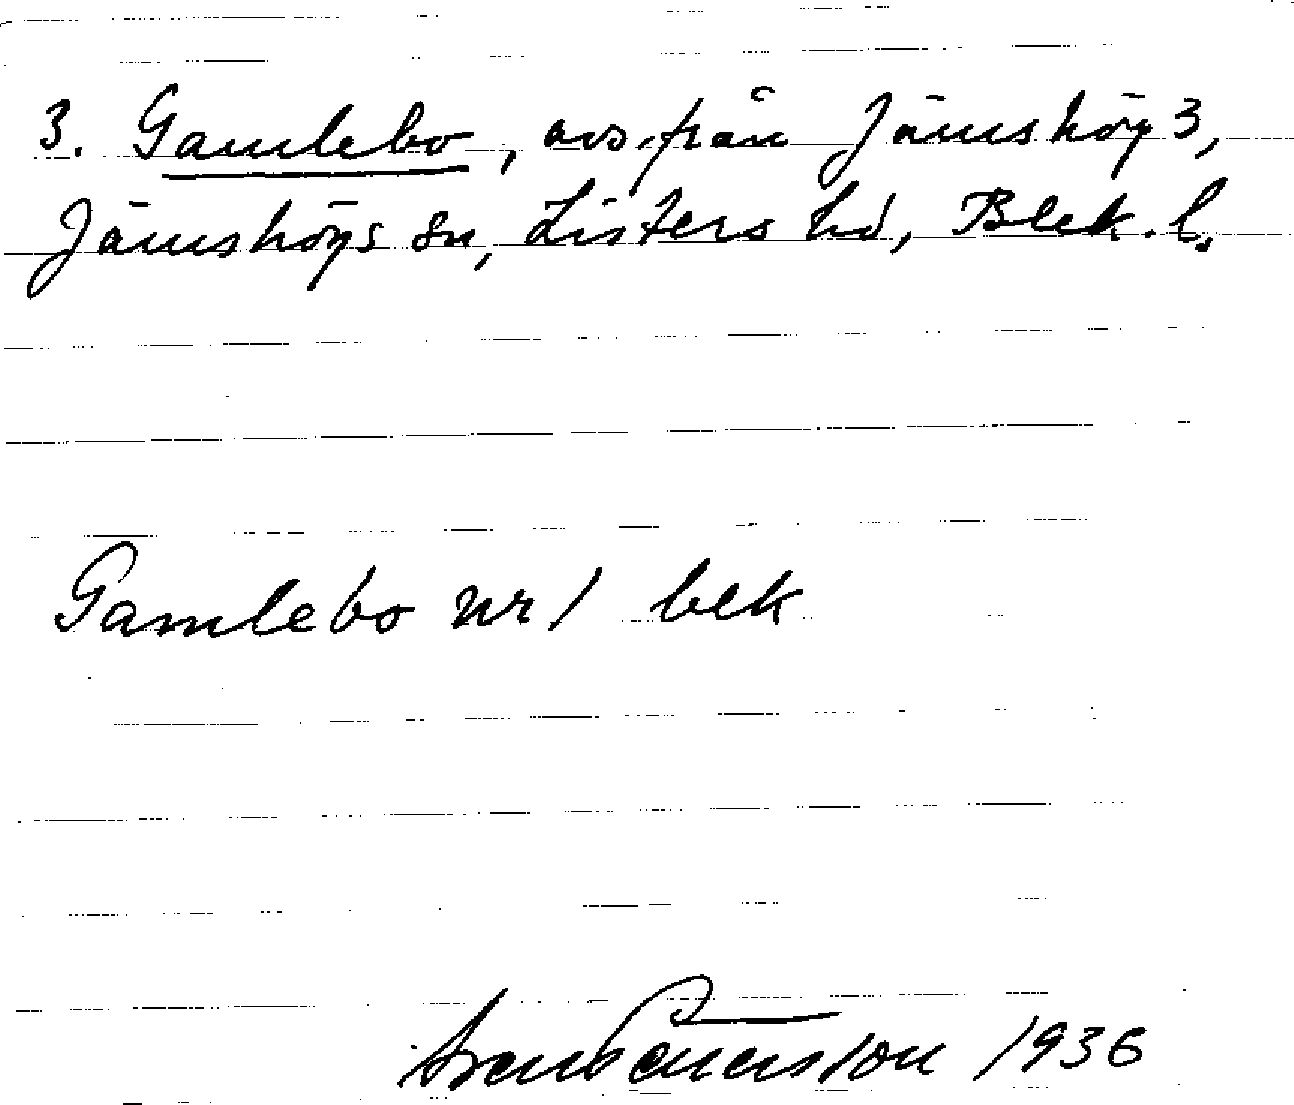 3. Gamlebo, avs. från Jämshög 3,
Jämshögs sn, Listers hd, Blek. l.
Gamlebo nr 1 bek
1936